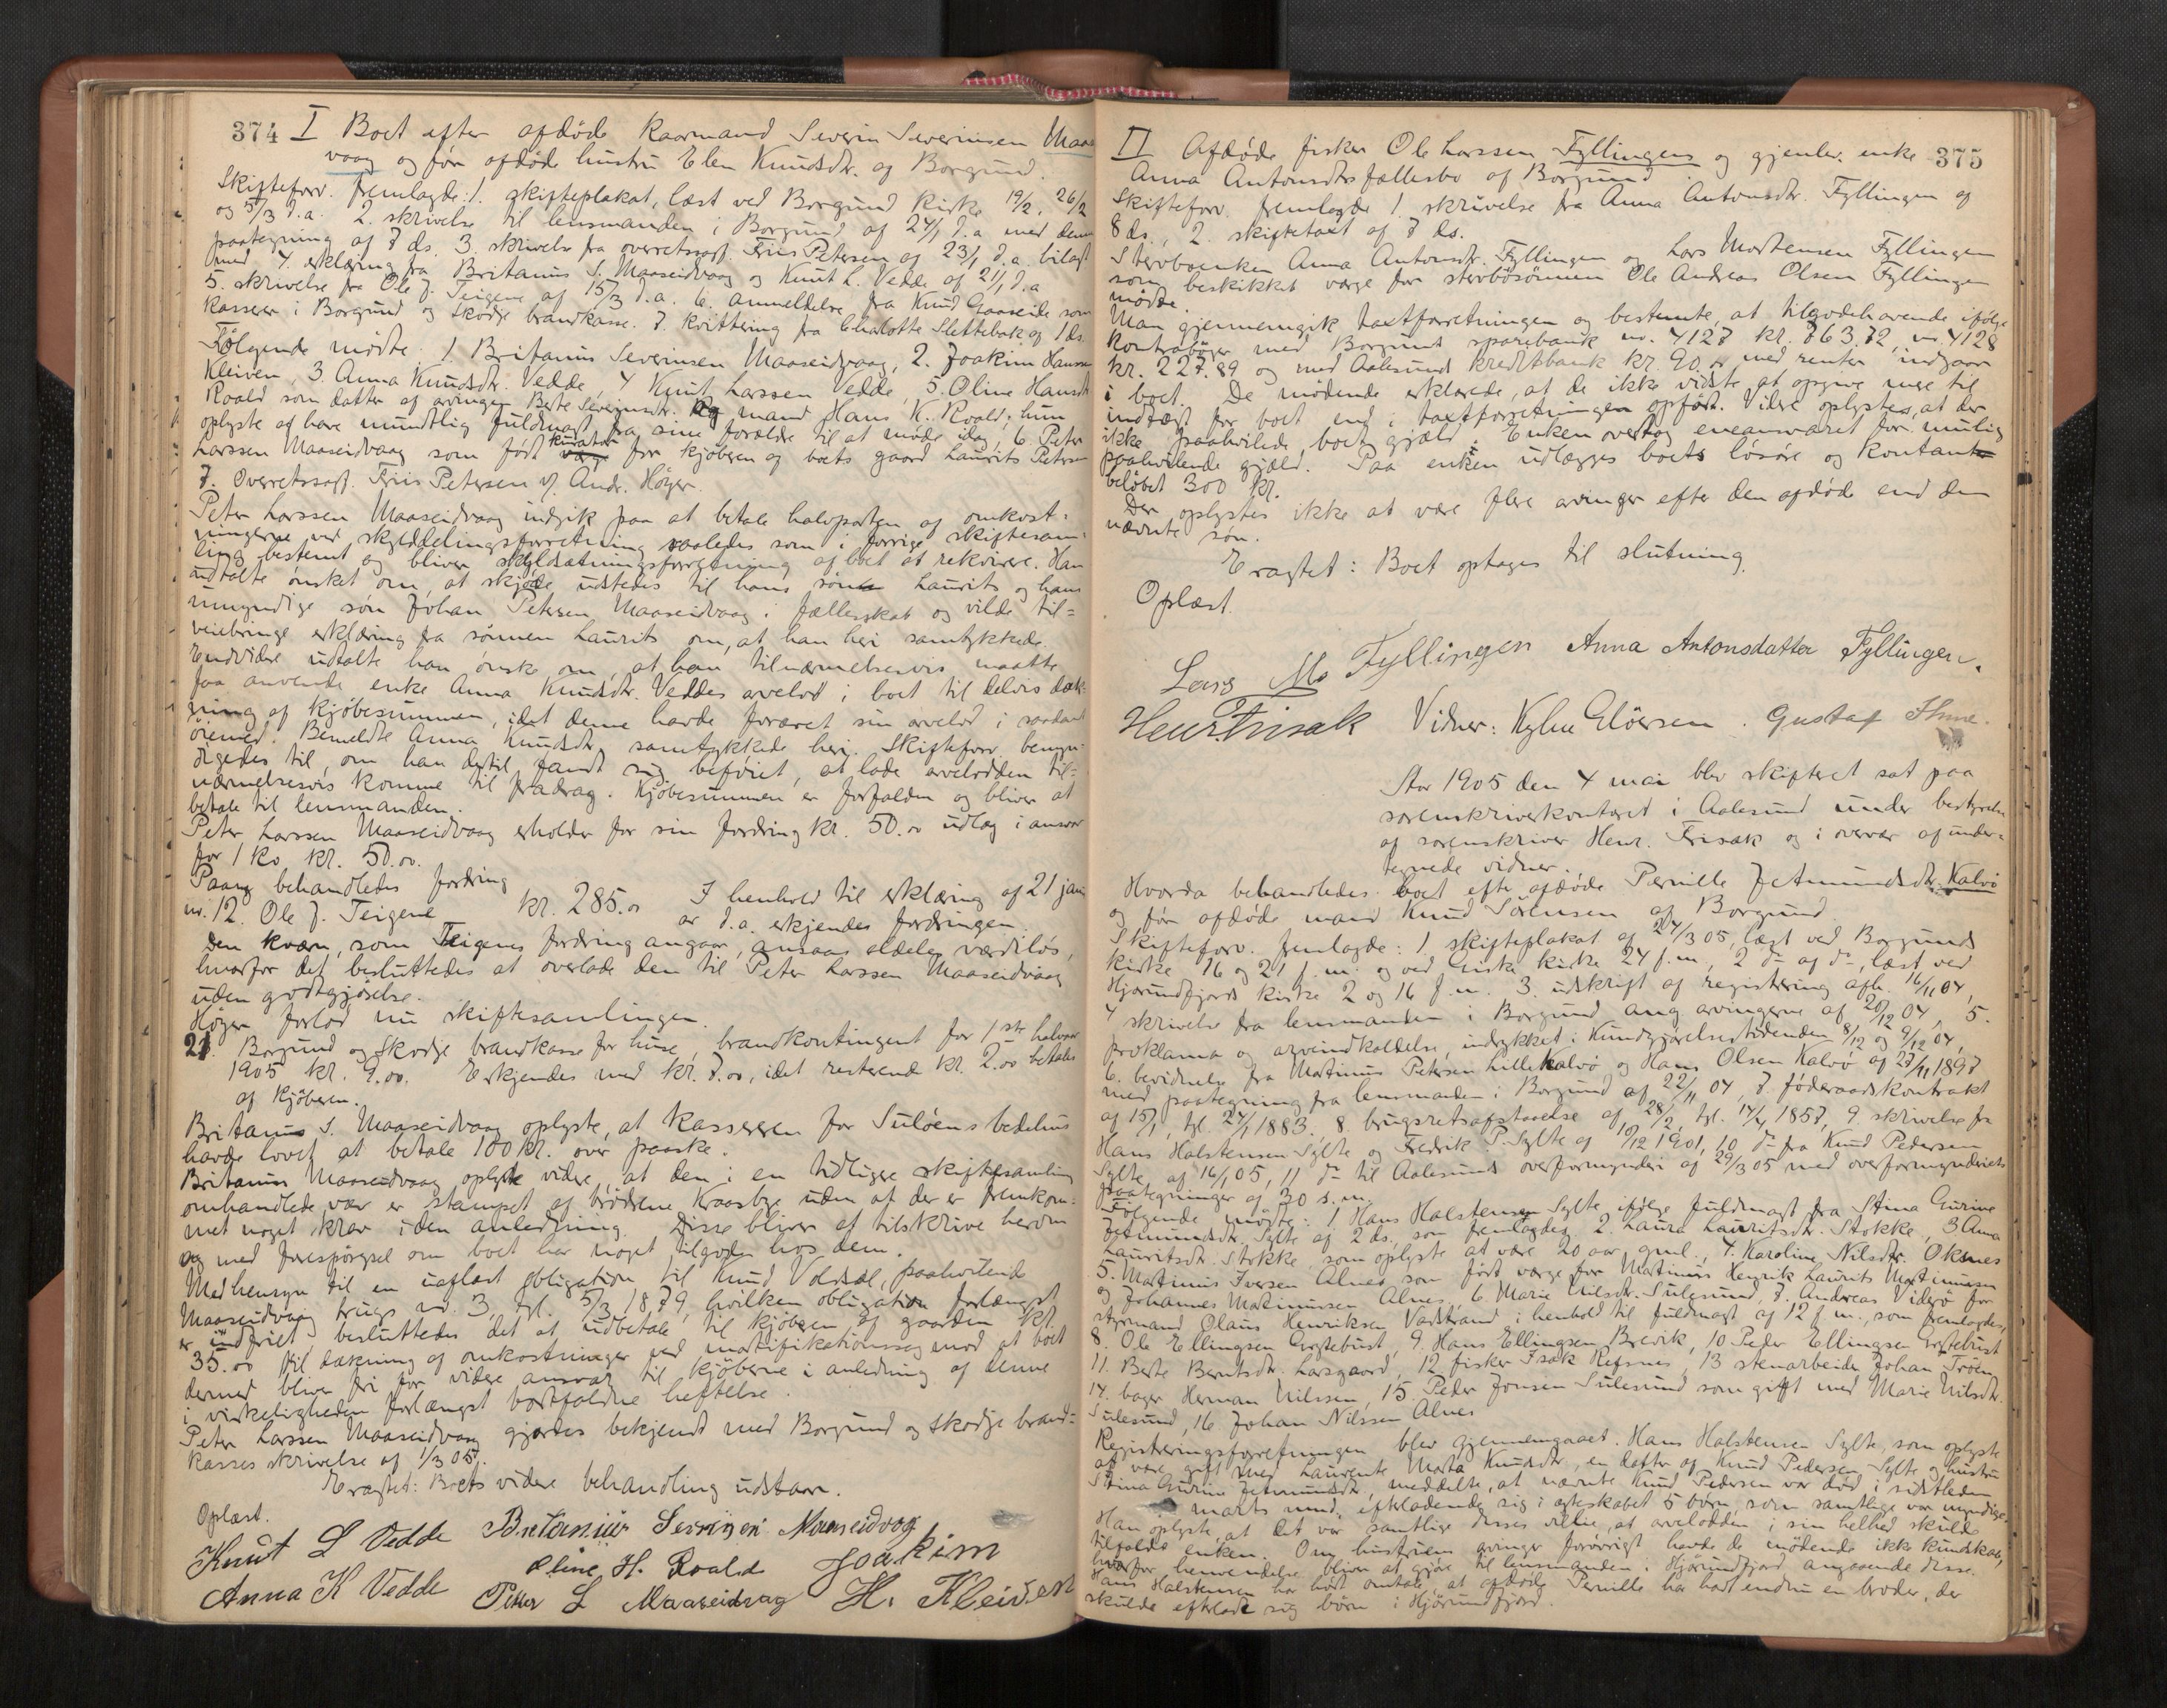 374 I Boet efter afdøde kaarmand Severin Severinsen Maa
vaag og før afdøde hustru Elen Knudsdtr. af Borgund.
Skifteforv. fremlagde: 1. skifteplakat, læst ved Borgund kirke 19/2, 26/2
og 5/3 d.a. 2. skrivelse til lensmanden i Borgund af 24/1 d.a. med dennes
paategning af 7 ds. 3. skrivelse fra overretssagf. Friis Petersen af 23/1 d.a. bilagt
med 4. erklæring fra Britanus S. Maaseidvaag og Knut L. Vedde af 21/1 d.a
5. skrivelse fra Ole J. Teigene af 15/3 d.a. 6. anmeldelse fra Knud Gaaseide som
kasserer i Borgund og Skodje brandkasse. 7. kvittering fra Charlotte Slettebak af 1 ds.
Følgende mødte. 1. Britanus Severinsen Maaseidvaag, 2. Joakim Hansen
Kleiven, 3. Anna Knudsdtr. Vedde, 4 Knut Larssen Vedde, 5. Oline Hansdtr
Roald som datter af arvingen Berte Severinsdtr. og mand Hans K. Roald; hun
oplyste at have mundtlig fuldmagt fra sine forældre til at møde idag, 6. Peter
Larssen Maaseidvaag som født kurator for kjøberen af boets gaard Laurits Petersen
7. Overretssagf. Friis Petersen v/ Andr. Høyer.
Peter Larssen Maaseidvaag indgik paa at betale halvparten af omkost=
ningerne ved skylddelingsforretning saaledes som i forrige skiftesam=
ling bestemt og bliver skyldsætningsforretning af boet at rekvirere. Han
udtalte ønsket om, at skjøde udstedes til hans søn Laurits og hans
umyndige søn Johan Petersen Maaseidvaag i fællesskab og vilde til=
veiebringe erklæring fra sønnen Laurits om, at han heri samtykkede.
Endvidere udtalte han ønske om, at han tilnærmelsesvis maatte
faa anvende enke Anna Knudsdtr. Veddes arvelod i boet til delvis dæk=
ning af kjøbesummen, idet denne havde foræret sin arvelod i saadant
øiemed. Bemeldte Anna Knudsdtr. samtykkede heri. Skifteforv. bemyn=
digedes til, om han dertil fandt sig beføiet, at lade arvelodden til=
nærmelsesvis komme til fradrag. Kjøbesummen er forfalden og bliver at
betale til lensmanden.
Peter Larssen Maaseidvaag erholder for sin fordring kr. 50.00 udlæg i ansvar
for 1 ko kr. 50.00.
Paany behandledes fordring
nr. 12. Ole J. Teigene kr. 285.00 I henhold til erklæring af 21 janu
ar d.a. erkjendes fordringen.
Den kværn, som Teigenes fordring angaar, ansaaes aldeles værdiløs,
hvorfor det besluttedes at overlade den til Peter Larssen Maaseidvaag
uden godtgjørelse.
Høyer forlod nu skiftesamlingen.
21. Borgund og Skodje brandkasse for huse, brandkontingent for 1ste halvaar
1905 kr. 9.00. Erkjendes med kr. 7.00, idet resterende kr. 2.00 betales
af kjøberen.
Britanus S. Maaseidvaag oplyste, at kassereren for Suløens bedehus
havde lovet at betale 100 kr. over paaske.
Britanus Maaseidvaag oplyste videre, at den i en tidligere skiftesamling
omhandlede var er stampet af brødrene Kraaby uden at der er fremkom=
met noget krav i den anledning. Disse bliver at tilskrive herom
og med forespørgsel om boet har noget tilgode hos dem.
Med hensyn til en uaflæst obligation til Knud Voldsdal, paahvilende
Maaseidvaag brugs nr. 3, tgl. 5/3 1879, hvilken obligation forlængst
er indfriet, besluttedes det at udbetale til kjøberen af gaarden kr.
35.00 til dækning af omkostninger ved mortifikationssag mod at boet
dermed bliver fri for videre ansvar til kjøberne i anledning af denne
i virkeligheden forlængst bortfaldne heftelse.
Peter Larssen Maaseidvaag gjordes bekjendt med Borgund og Skodje brand=
kasses skrivelse af 1/3 05.
Eragtet: Boets videre behandling udstaar.
Oplæst.
Knut L Vedde Britanius Sevrinsen Maaseidvag
Oline H. Roald Joakim
Anna K Vedde Petter L Maaseidvag H. Kleiven
II Afdøde fisker Ole Larssen Fyllingens og gjenlev. enke 375
Anna Antonsdtrs fællesbo af Borgund.
Skifteforv. fremlagde 1. skrivelse fra Anna Antonsdtr. Fyllingen af
8 ds., 2. skiftetaxt af 7 ds.
Stervboenken Anna Antonsdtr. Fyllingen og Lars Mortensen Fyllingen
som beskikket værge for stervbosønnen Ole Andreas Olsen Fyllingen
mødte.
Man gjennemgik taxtforretningen og bestemte, at tilgodehavende ifølge
kontrabøger med Borgund sparebank nr. 4127 kr. 763.72, nr. 4128
kr. 227.89 og med Aalesunds kreditbank kr. 90.00 med renter indgaar
i boet. De mødende erklærede, at de ikke vidste at opgive mere til
indtægt for boet end i taxtforretningen opført. Videre oplystes, at der
ikke paahvilede boet gjæld. Enken overtog eneansvaret for mulig
paahvilende gjæld. Paa enken udlægges boets løsøre og kontant
beløbet 300 kr.
Der oplystes ikke at være flere arvinger efter den afdøde end den
nævnte søn.
Eragtet: Boet optages til slutning.
Oplæst.
Lars Mo Fyllingen Anna Antonsdatter Fyllingen.
Henr. Frisak Vidner: Kyhn Gløersen. Gustaf Thime.
Aar 1905 den 4 mai blev skifteret sat paa
sorenskriverkontoret i Aalesund under bestyrelse
af sorenskriver Henr. Frisak og i overvær af under=
tegnede vidner.
Hvorda behandledes boet efter afdøde Pernille Jetmundsdtr. Kalvø
og før afdøde mand Knud Sørensen af Borgund.
Skifteforv. fremlagde: 1 skifteplakat af 24/3 05, læst ved Borgunds
kirke 16 og 21 f.m. og ved Giske kirke 24 f.m., 2 do af do, læst ved
Hjørundfjords kirke 2 og 16 f.m. 3. udskrift af registrering afh. 16/11 04,
4 skrivelse fra lensmanden i Borgund ang. arvingerne af 20/12 04, 5.
proklama og arveindkaldelse, indrykket i Kundgjørelsestidenden 8/12 og 9/12 04,
6. bevidnelse fra Martinus Petersen Lillekalvø og Hans Olsen Kalvø af 27/11 1897
med paategning fra lensmanden i Borgund af 22/11 04, 7. føderaadskontrakt
af 15/1, tgl. 24/1 1883. 8. brugsretsafstaaelse af 28/2, tgl. 14/4 1857, 9 skrivelse fra
Hans Halstensen Sylte og Fredrik P. Sylte af 10/12 1901, 10 do fra Knud Pedersen
Sylte af 16/1 05, 11 do til Aalesunds overformynderi af 29/3 05 med overformynderiets
paategninger af 30 s.m.
Følgende mødte: 1 Hans Halstensen Sylte ifølge fuldmagt fra Stina Gurine
Jetmundsdtr. Sylte af 2 ds., som fremlagdes, 2. Laura Lauritsdtr. Stokke, 3 Anna
Lauritsdtr. Stokke, som oplyste at være 20 aar gml., 4. Karoline Nilsdtr. Oksnes
5. Martinus Iversen Alnes som født værge for Martinus Henrik Laurits Martinussen
og Johannes Martinussen Alnes, 6. Marie Nilsdtr. Sulesund, 7. Andreas Viderø for
styrmand Olaus Henriksen Vadstrand i henhold til fuldmagt af 12 f.m., som fremlagdes,
8. Ole Ellingsen Gregstebust, 9. Hans Ellingsen Brevik, 10 Peder Ellingsen Grytebust
11. Berte Berntsdtr. Larsgaard, 12 fisker Isak Refsnes, 13 stenarbeider Johan Trøen
14. bager Herman Nilssen, 15 Peder Jonsen Sulesund som gift med Marie Nilsdtr.
Sulesund, 16 Johan Nilssen Alnes
Registreringsforretningen blev gjennemgaaet. Hans Halstensen Sylte, som oplyste
at være gift med Laurente Marta Knudsdtr., en datter af Knud Pedersen Sylte og hustru
Stina Gurine Jetmundsdtr, meddelte, at nævnte Knud Pedersen var død i sidstleden
marts mnd., efterladende sig i ægteskabet 5 børn, som samtlige var myndige.
Han oplyste, at det var samtlige disses vilje, at arvelodden i sin helhed skulde
tilfalde enken. Om hustruens arvinger forøvrigt havde de mødende ikke kundskab,
hvorfor henvendelse bliver at gjøre til lensmanden i Hjørundfjord angaaende disse.
Hans Halstensen har hørt omtale, at afdøde Pernille har havt endnu en broder, der
skulde efterlade sig børn i Hjørundfjord.